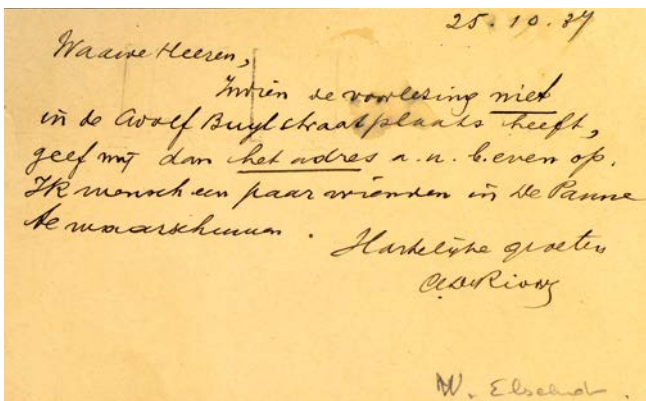 25.10.37
Waarde Heeren,
Indien de voorlezing niet
in de Adolf Buylstraat plaats heeft,
geef mij dan het adres a.u.b. even op.
Ik wensch een paar vrienden in De Panne
te waarschuwen. Hartelijke groeten
A. De Ridder
W. Elsschot.